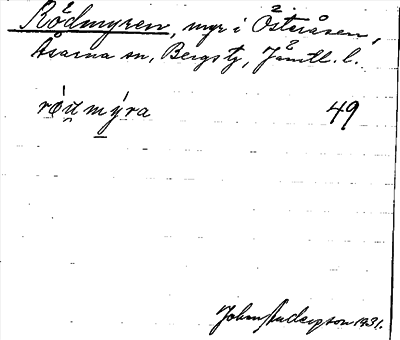 Rödmyren, myr i Österåsen,
Åsarna sn, Bergs tg, Jämtl. l.
rón mýra 49
Johan Anderson 1931.